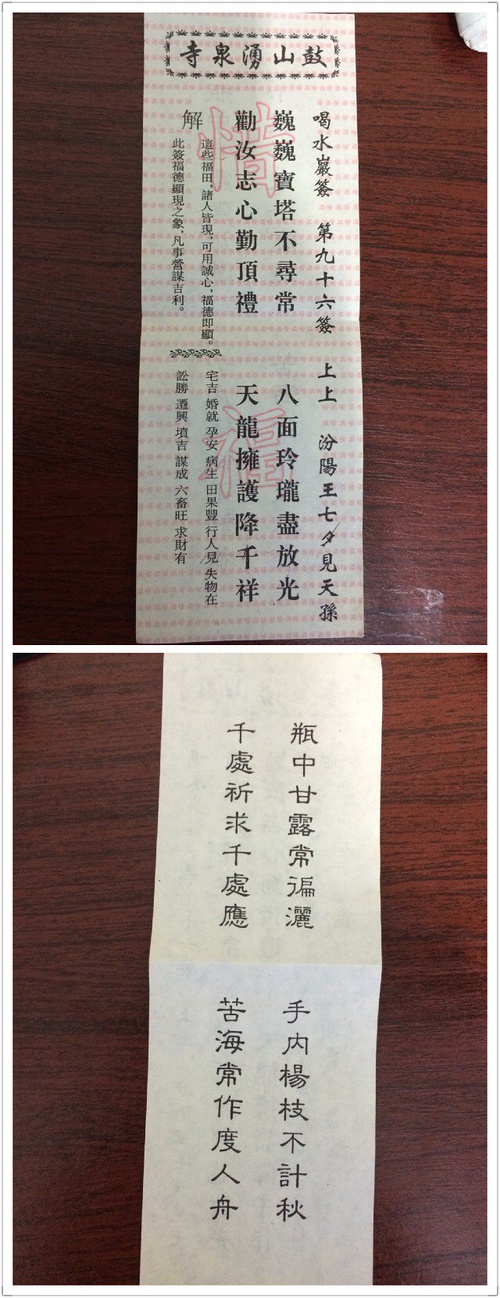 鼓山湧泉寺
喝水巖簽 第九十六簽 上上 汾陽王七夕見天孫
巍巍寶塔不尋常 八面玲瓏盡放光
勸汝志心勤頂禮 天龍擁護降千祥
解
這些福田，諸人皆現，可用誠心，福德即顯。
此簽福德顯現之象，凡事營謀吉利。
宅吉 婚就 孕安 病生 田果豐 行人見 失物在
訟勝 遷興 墳吉 謀成 六畜旺 求財有
惜
福
瓶中甘露常徧灑 手內楊枝不計秋
千處祈求千處應 苦海常作度人舟